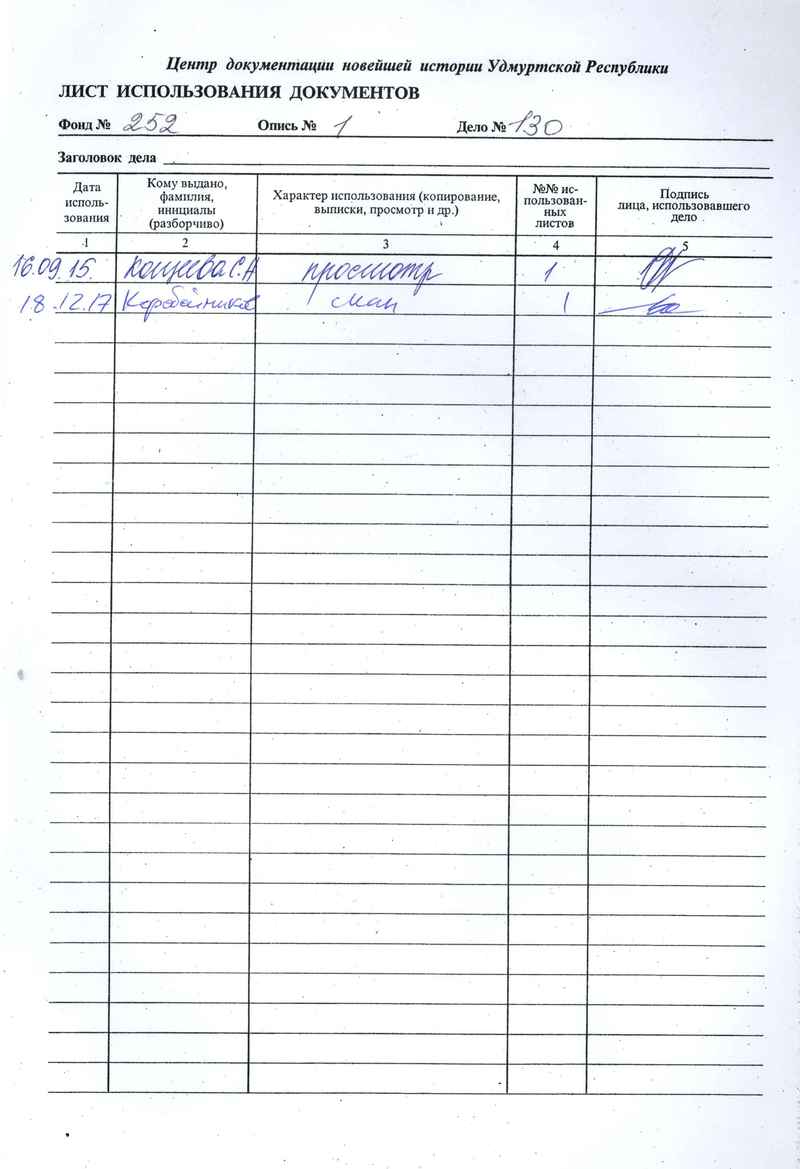 Центр документации новейшей истории Удмуртской Республики
ЛИСТ ИСПОЛЬЗОВАНИЯ ДОКУМЕНТОВ
Фонд № 252 Опись № 1 Дело № 130
Заголовок дела
Дата исполь-зования
Кому выдано, фамилия, инициалы (разборчиво)
Характер использования (копирование, выписки, просмотр и др.)
№№ ис-пользован-ных листов
Подпись лица, использовавшего дело
1 2 3 4 5
16.09.15. С.А просмотр 1
18.12.17 Коробейников скан 1